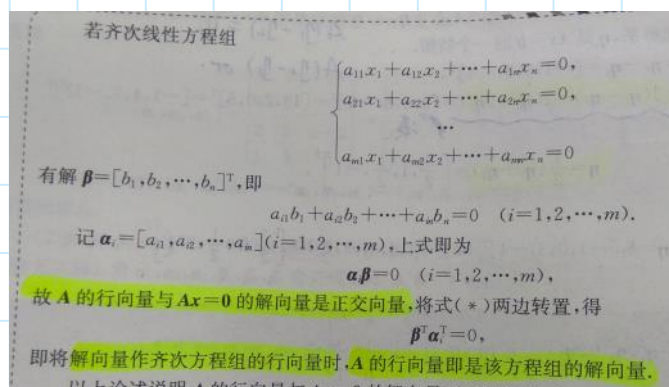 若齐次线性方程组
a₁₁x₁+a₁₂x₂+⋯+a₁ₙxₙ=0,
a₂₁x₁+a₂₂x₂+⋯+a₂ₙxₙ=0,
⋯
aₘ₁x₁+aₘ₂x₂+⋯+aₘₙxₙ=0
有解 β=[b₁,b₂,⋯,bₙ]ᵀ,即
aᵢ₁b₁+aᵢ₂b₂+⋯+aᵢₙbₙ=0 (i=1,2,⋯,m).
记 αᵢ=[aᵢ₁,aᵢ₂,⋯,aᵢₙ](i=1,2,⋯,m),上式即为
αᵢβ=0 (i=1,2,⋯,m),
故 A 的行向量与 Ax=0 的解向量是正交向量,将式(*)两边转置,得
βᵀαᵢᵀ=0,
即将解向量作齐次方程组的行向量时,A 的行向量即是该方程组的解向量.